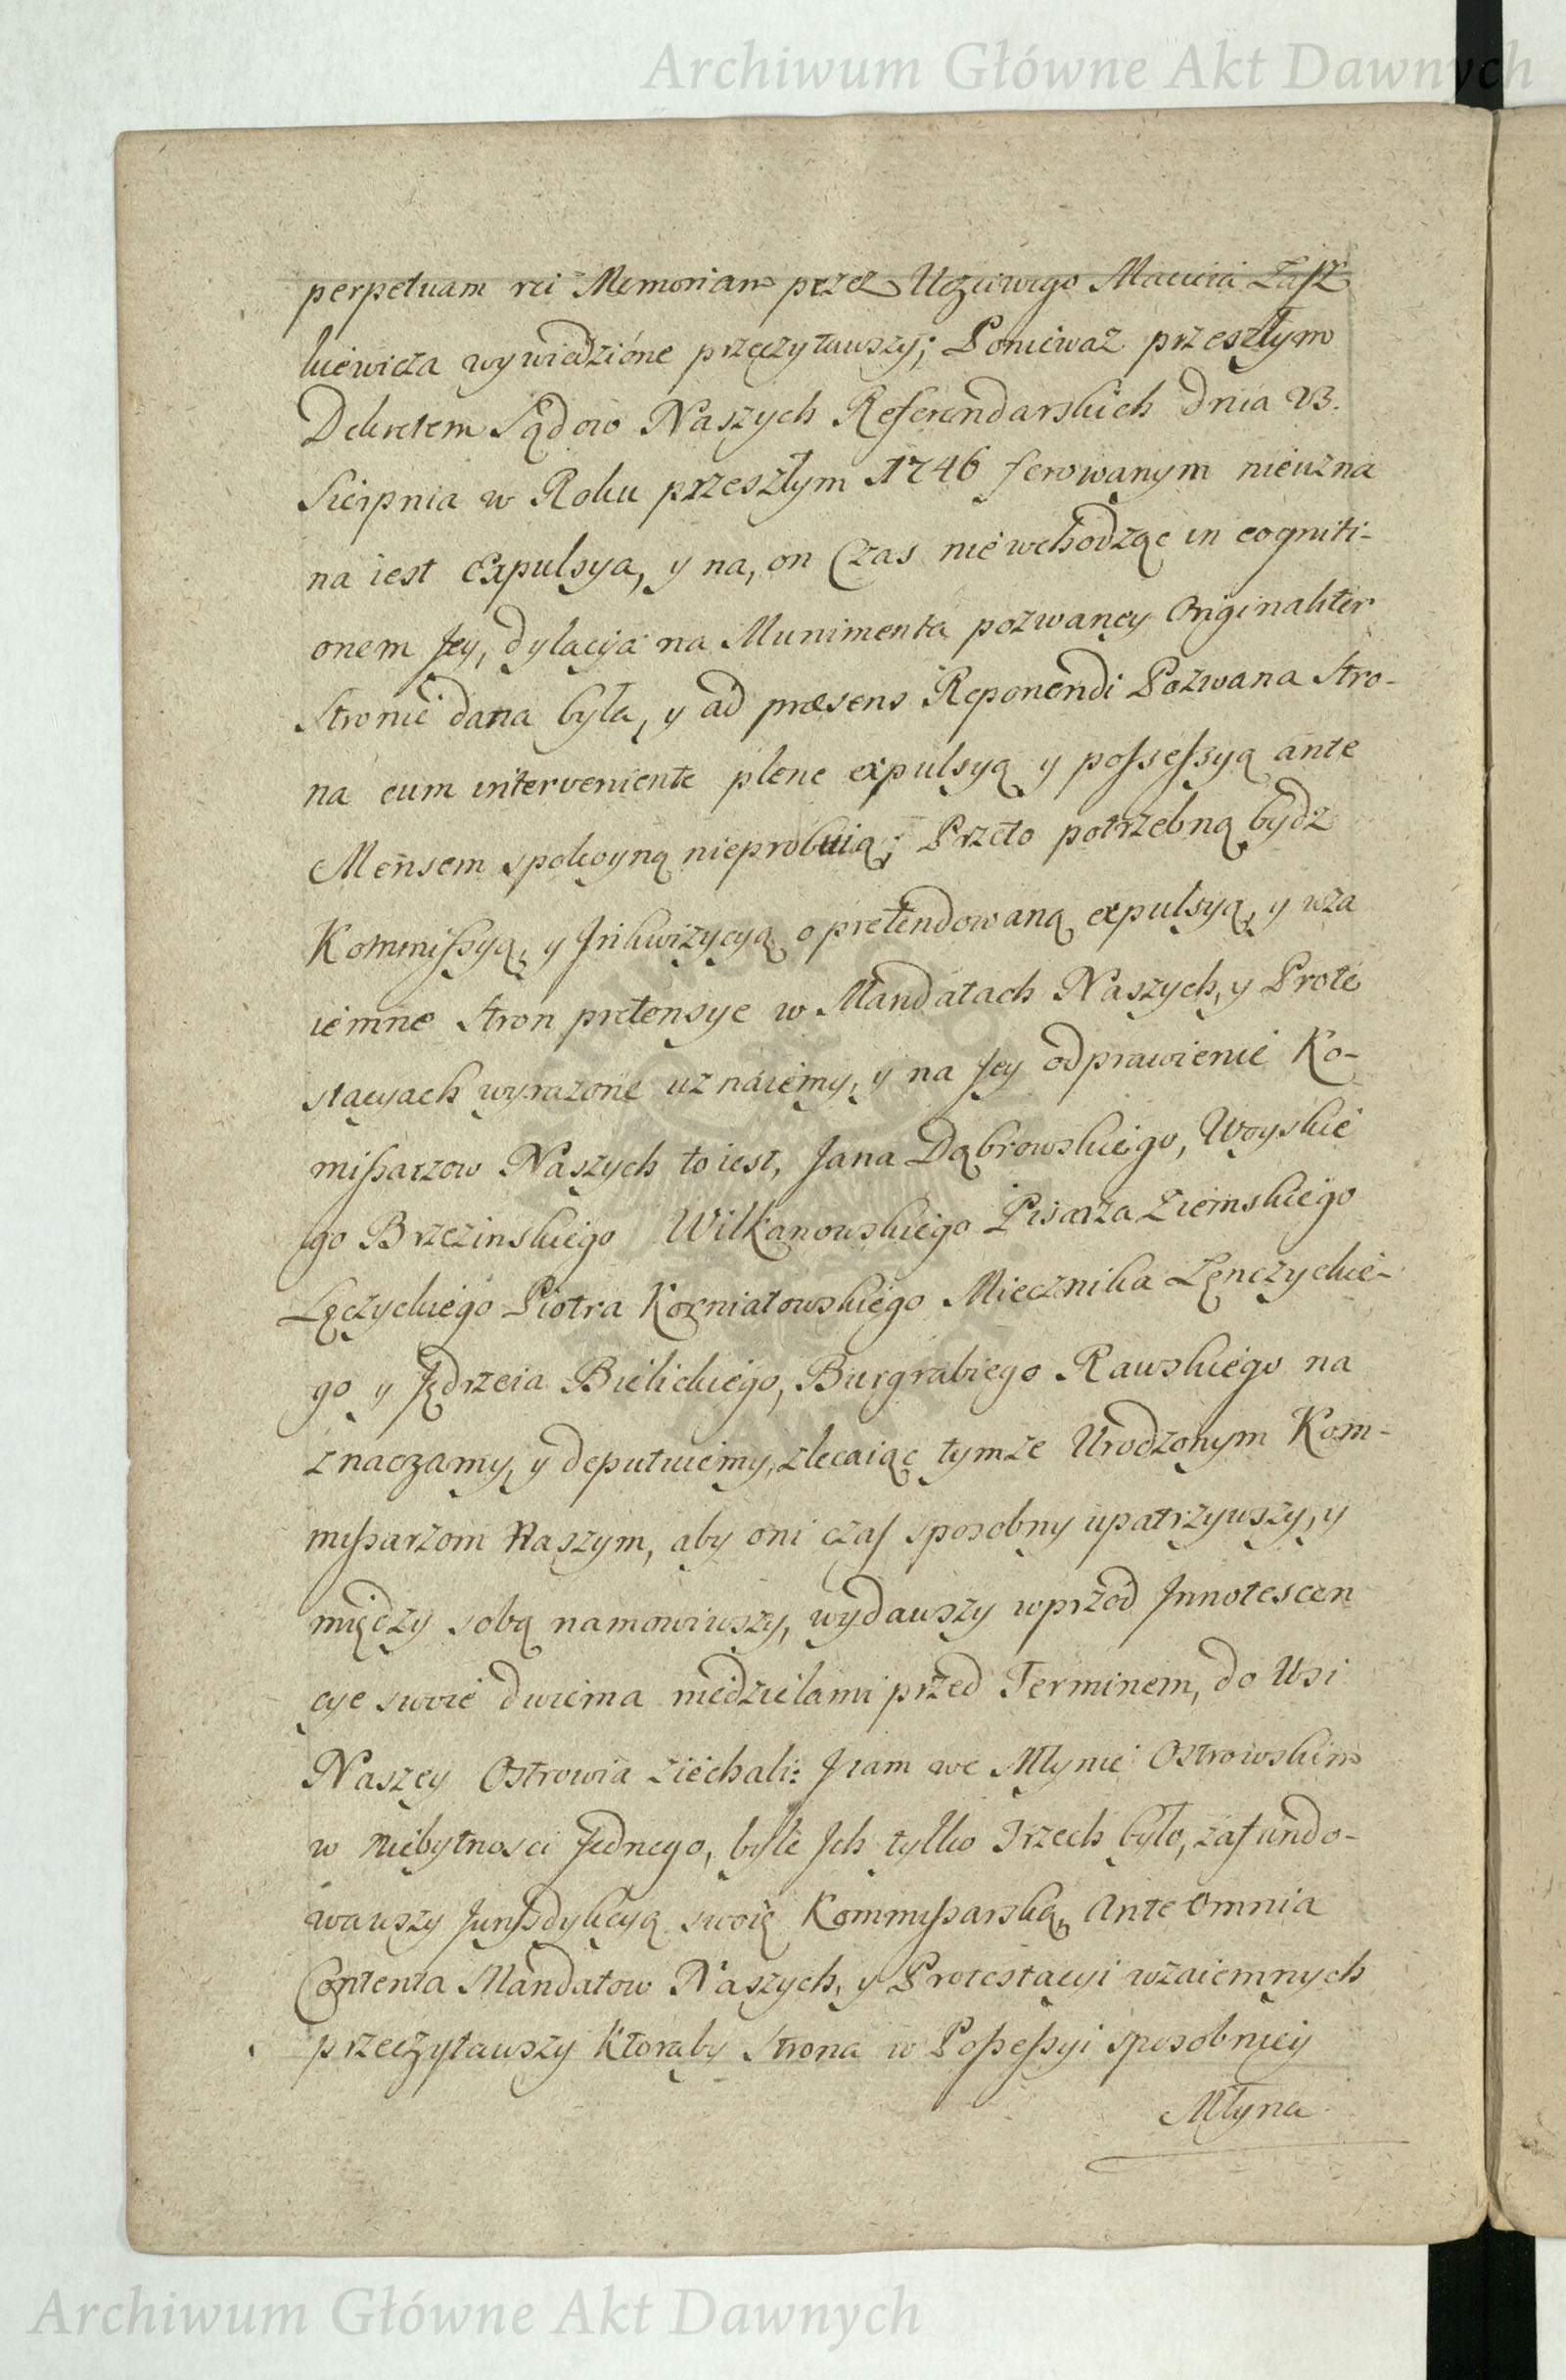 Archiwum Główne Akt Dawnych
perpetuam rei Memoriam przez Uczciwego Macieia Łasz
kiewicza wywiedzióne przeczytawszy; Ponieważ przeszłym
Dekretem Sądow Naszych Referendarskich dnia 23.
Sierpnia w Roku przeszłym 1746 ferowanym nieuzna
na iest Expulsya, y na, on Czas niewchodząc in cogniti-
onem Jey, dylacya na Munimenta pozwaney Originaliter
Stronie dana była, y ad præsens Reponendi Pozwana Stro-
na cum interveniente plene expulsyą y possessyą ante
Mensem spokoyną nieprobuią; Przeto potrzebną bydź
Kommissyą, y Jnkwizycyą o pretendowaną expulsyą, y wza
iemne Stron pretensye w Mandatach Naszych, y Prote
stacyach wyrazone uznaiemy, y na Jey odprawienie Ko-
missarzow Naszych to iest, Jana Dąbrowskiego, Woyskie
go Brzezinskiego Wilkanowskiego Pisarza Ziemskiego
Łęczyckiego Piotra Kozniatowskiego Miecznika Łęnczyckie-
go y Jędrzeia Bielickiego, Burgrabiego Rawskiego na
znaczamy, y deputuiemy, zlecaiąc tymze Urodzonym Kom-
missarzom Naszym, aby oni czas sposobny upatrzywszy, y
między sobą namowiwszy, wydawszy wprzód Jnnotescen
cye swoie dwiema niedzielami przed Terminem, do Wsi
Naszey Ostrowia ziechali: J tam we Młynie Ostrowskim
w niebytnosci Jednego, byle Jch tylko Trzech było, zafundo-
wawszy Jurisdykcyą swoię Kommissarską, Ante Omnia
Contenta Mandatow Naszych, y Protestacyi wzaiemnych
przeczytawszy Ktoraby Strona w Possessyi sposobniey
Młyna
Archiwum Główne Akt Dawnych